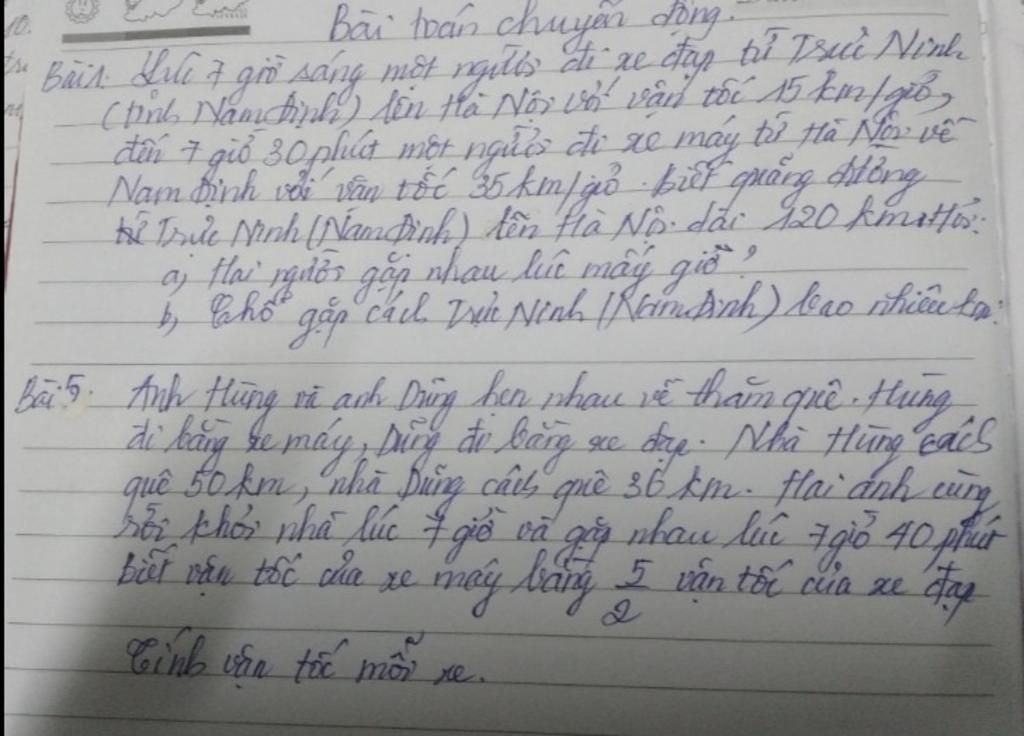 Bài toán chuyển động.
Bài 1. Lúc 7 giờ sáng một người đi xe đạp từ Trực Ninh
(tỉnh Nam Định) lên Hà Nội với vận tốc 15 km/giờ,
đến 7 giờ 30 phút một người đi xe máy từ Hà Nội về
Nam Định với vân tốc 35 km/giờ. Biết quãng đường
từ Trực Ninh (Nam Định) lên Hà Nội dài 120 km. Hỏi:
a, Hai người gặp nhau lúc mấy giờ?
b, Chỗ gặp cách Trực Ninh (Nam Định) bao nhiêu km?
Bài 5. Anh Hùng và anh Dũng hẹn nhau về thăm quê. Hùng
đi bằng xe máy, Dũng đi bằng xe đạp. Nhà Hùng cách
quê 50 km, nhà Dũng cách quê 36 km. Hai anh cùng
rời khỏi nhà lúc 7 giờ và gặp nhau lúc 7 giờ 40 phút
biết vận tốc của xe máy bằng 5/2 vận tốc của xe đạp
Tính vận tốc mỗi xe.